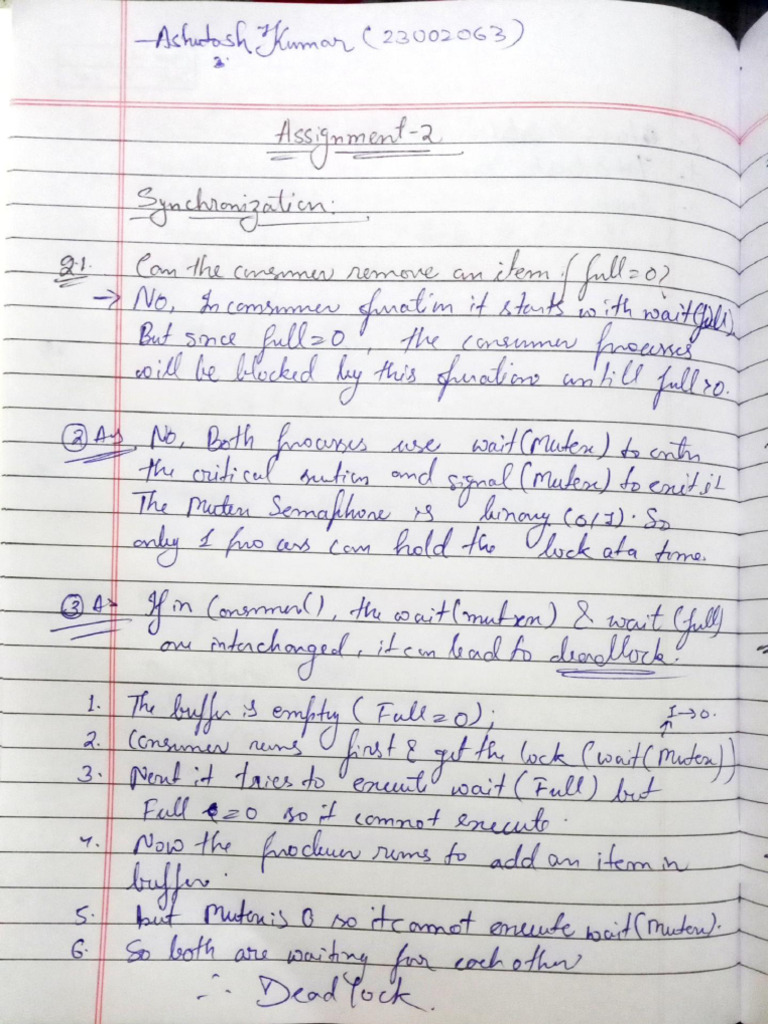 -Ashutosh Kumar (23002063)
Assignment-2
Synchronization:
Q.1. Can the consumer remove an item if full=0?
→ No, In comsumer function it starts with wait(full).
But since full=0, the consumer processes
will be blocked by this function untill full>0.
② Ans No, Both processes use wait(Mutex) to enter
the critical section and signal (Mutex) to exit it
The Mutex Semaphone is binary (0/1). So
only 1 process can hold the lock at a time.
③ A> If in Consumer(), the wait(mutex) & wait (full)
are interchanged, it can lead to deadlock.
1. The buffer is empty (Full=0);
1→0.
↑
2. Consumer runs first & get the lock (wait(Mutex))
3. Next it tries to execute wait (Full) but
Full =0 so it cannot execute.
4. Now the producer runs to add an item in
buffer.
5. but Mutex is 0 so it cannot execute wait(Mutex).
6. So both are waiting for each other
∴ Dead lock.